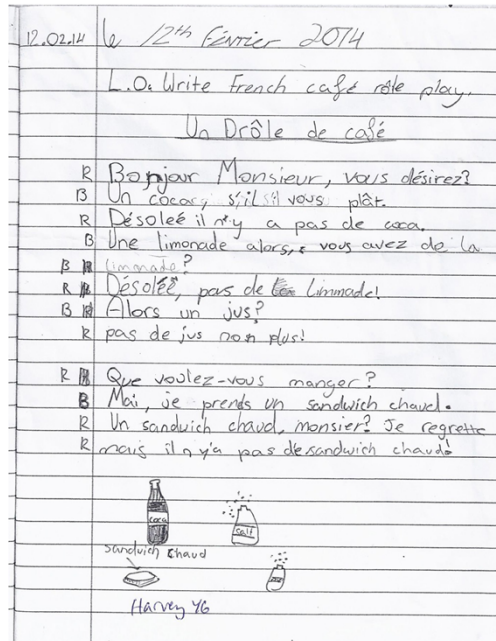 12.02.14 le 12th Février 2014
L.O. Write French café rôle play.
Un Drôle de café
R Bonjour Monsieur, vous désirez?
B Un coca, s'il vous plât.
R Désoleé il n'y a pas de coca.
B Une limonade alors, vous avez de la
B limmade?
R Désoléé, pas de limmade!
B Alors un jus?
R pas de jus non plus!
R Que voulez-vous manger?
B Mai, je prends un sandwich chaud.
R Un sandwich chaud, monsier? Je regrette
R mais il n'y'a pas de sandwich chaud!
coca
sandwich chaud
Harvey Y6